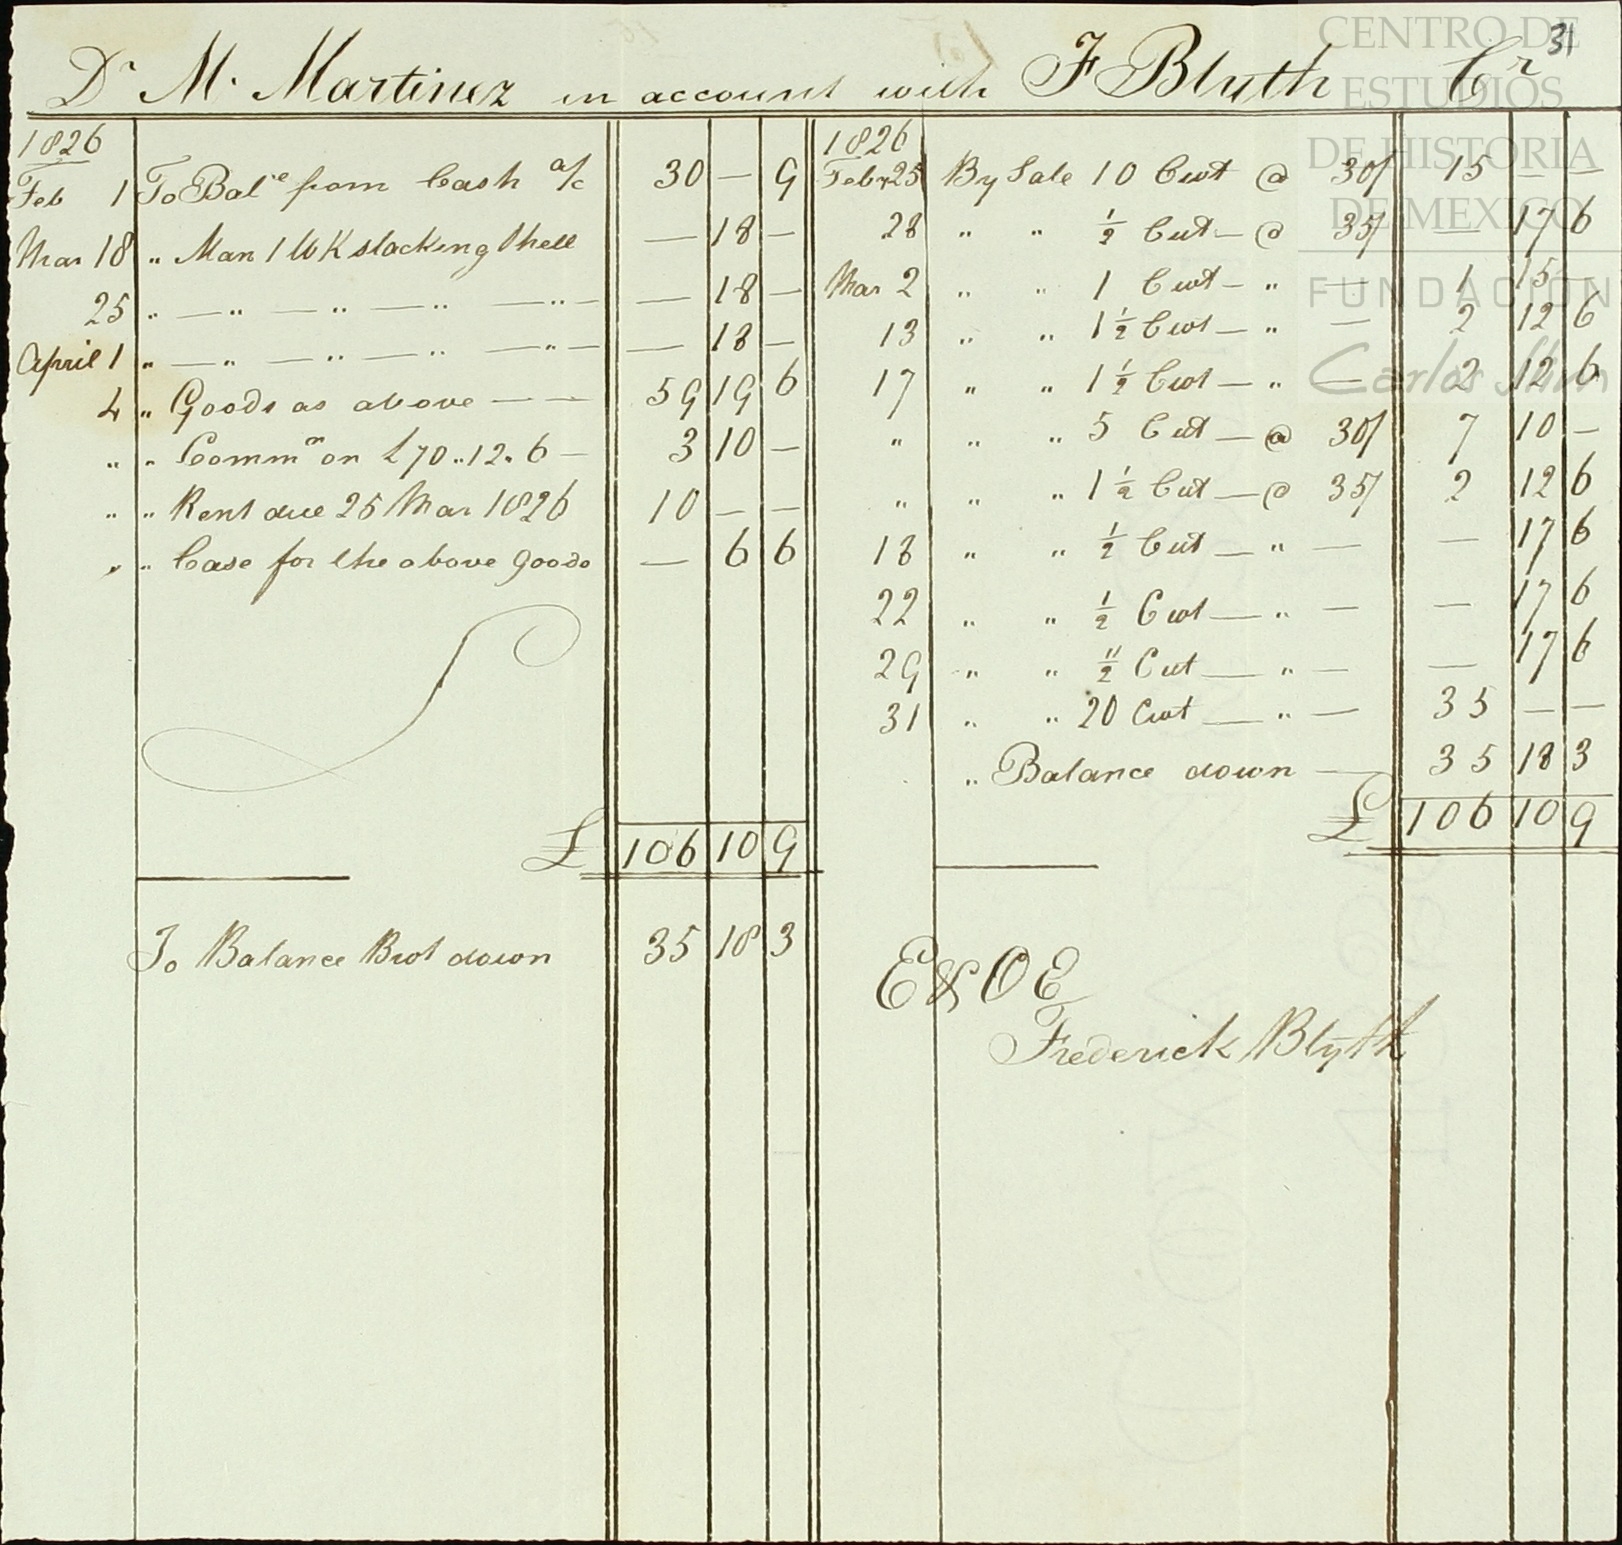 31
Dr M. Martinez in account with F Blyth Cr
1826
Feb 1 To Bale from Cash a/c 30 — 9
Mar 18 „ Man 1 Wk stacking Shell — 18 —
25 „ — „ — „ — „ — „ — — 18 —
April 1 „ — „ — „ — „ — „ — — 18 —
4 „ Goods as above — — 59 19 6
„ „ Commn on £70„12„6 — 3 10 —
„ „ Rent due 25 Mar 1826 10 — —
„ „ Case for the above goods — 6 6
£ 106 10 9
To Balance Brot down 35 18 3
1826
Feby 25 By Sale 10 Cwt @ 30/ 15 — —
28 „ „ 1/2 Cwt — @ 35/ — 17 6
Mar 2 „ „ 1 Cwt — „ — 1 15 —
13 „ „ 1 1/2 Cwt — „ — 2 12 6
17 „ „ 1 1/2 Cwt — „ — 2 12 6
„ „ „ 5 Cwt — @ 30/ 7 10 —
„ „ „ 1 1/2 Cwt — @ 35/ 2 12 6
18 „ „ 1/2 Cwt — „ — — 17 6
22 „ „ 1/2 Cwt — „ — — 17 6
29 „ „ 1/2 Cwt — „ — — 17 6
31 „ „ 20 Cwt — „ — 35 — —
„ Balance down — 35 18 3
£ 106 10 9
E & O E
Frederick Blyth
CENTRO DE
ESTUDIOS
DE HISTORIA
DE MEXICO
FUNDACIÓN
Carlos Slim